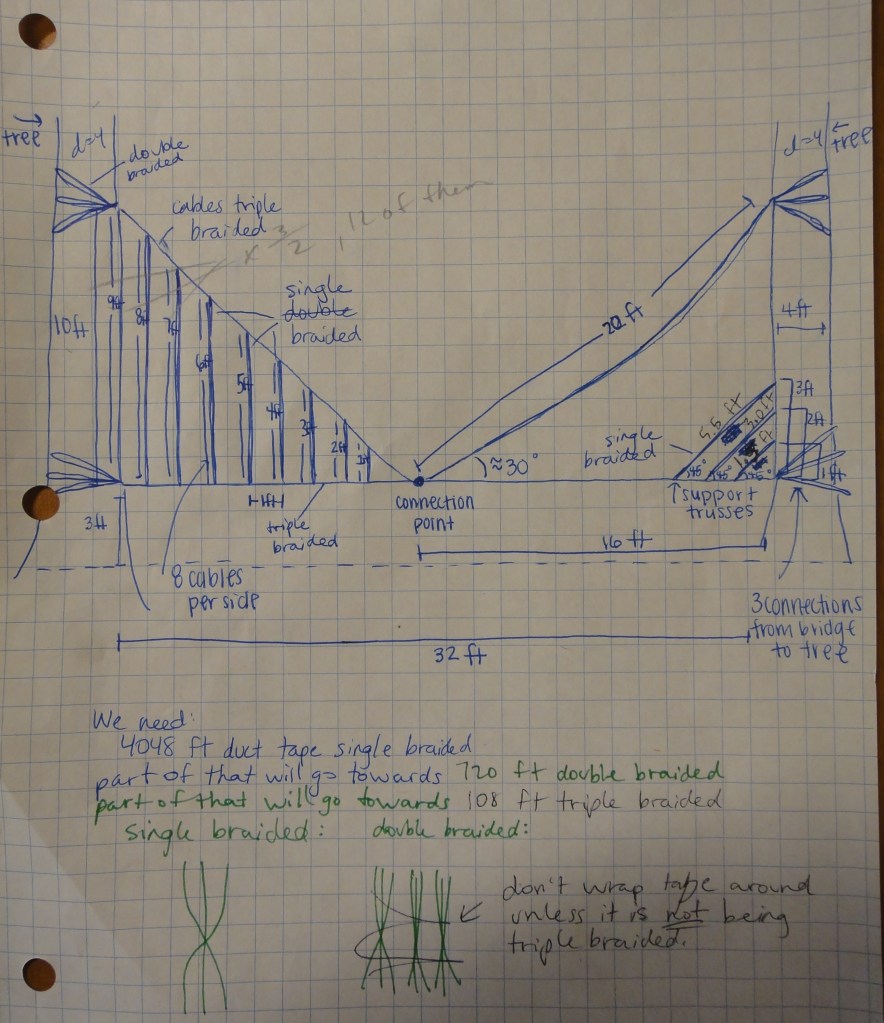 tree
d=4
double
braided
cables triple
braided
x 3/2, 12 of them
single
double
braided
10ft
9ft
8ft
7ft
6ft
5ft
4ft
3ft
2ft
1ft
3ft
8 cables
per side
1ft
triple
braided
connection
point
≈30°
20 ft
d=4
tree
4ft
3ft
2ft
1ft
5.5 ft
3.0ft
ft
45°
45°
45°
single
braided
support
trusses
16 ft
3 connections
from bridge
to tree
32 ft
We need:
4048 ft duct tape single braided
part of that will go towards 720 ft double braided
part of that will go towards 108 ft triple braided
single braided: double braided:
don't wrap tape around
unless it is not being
triple braided.